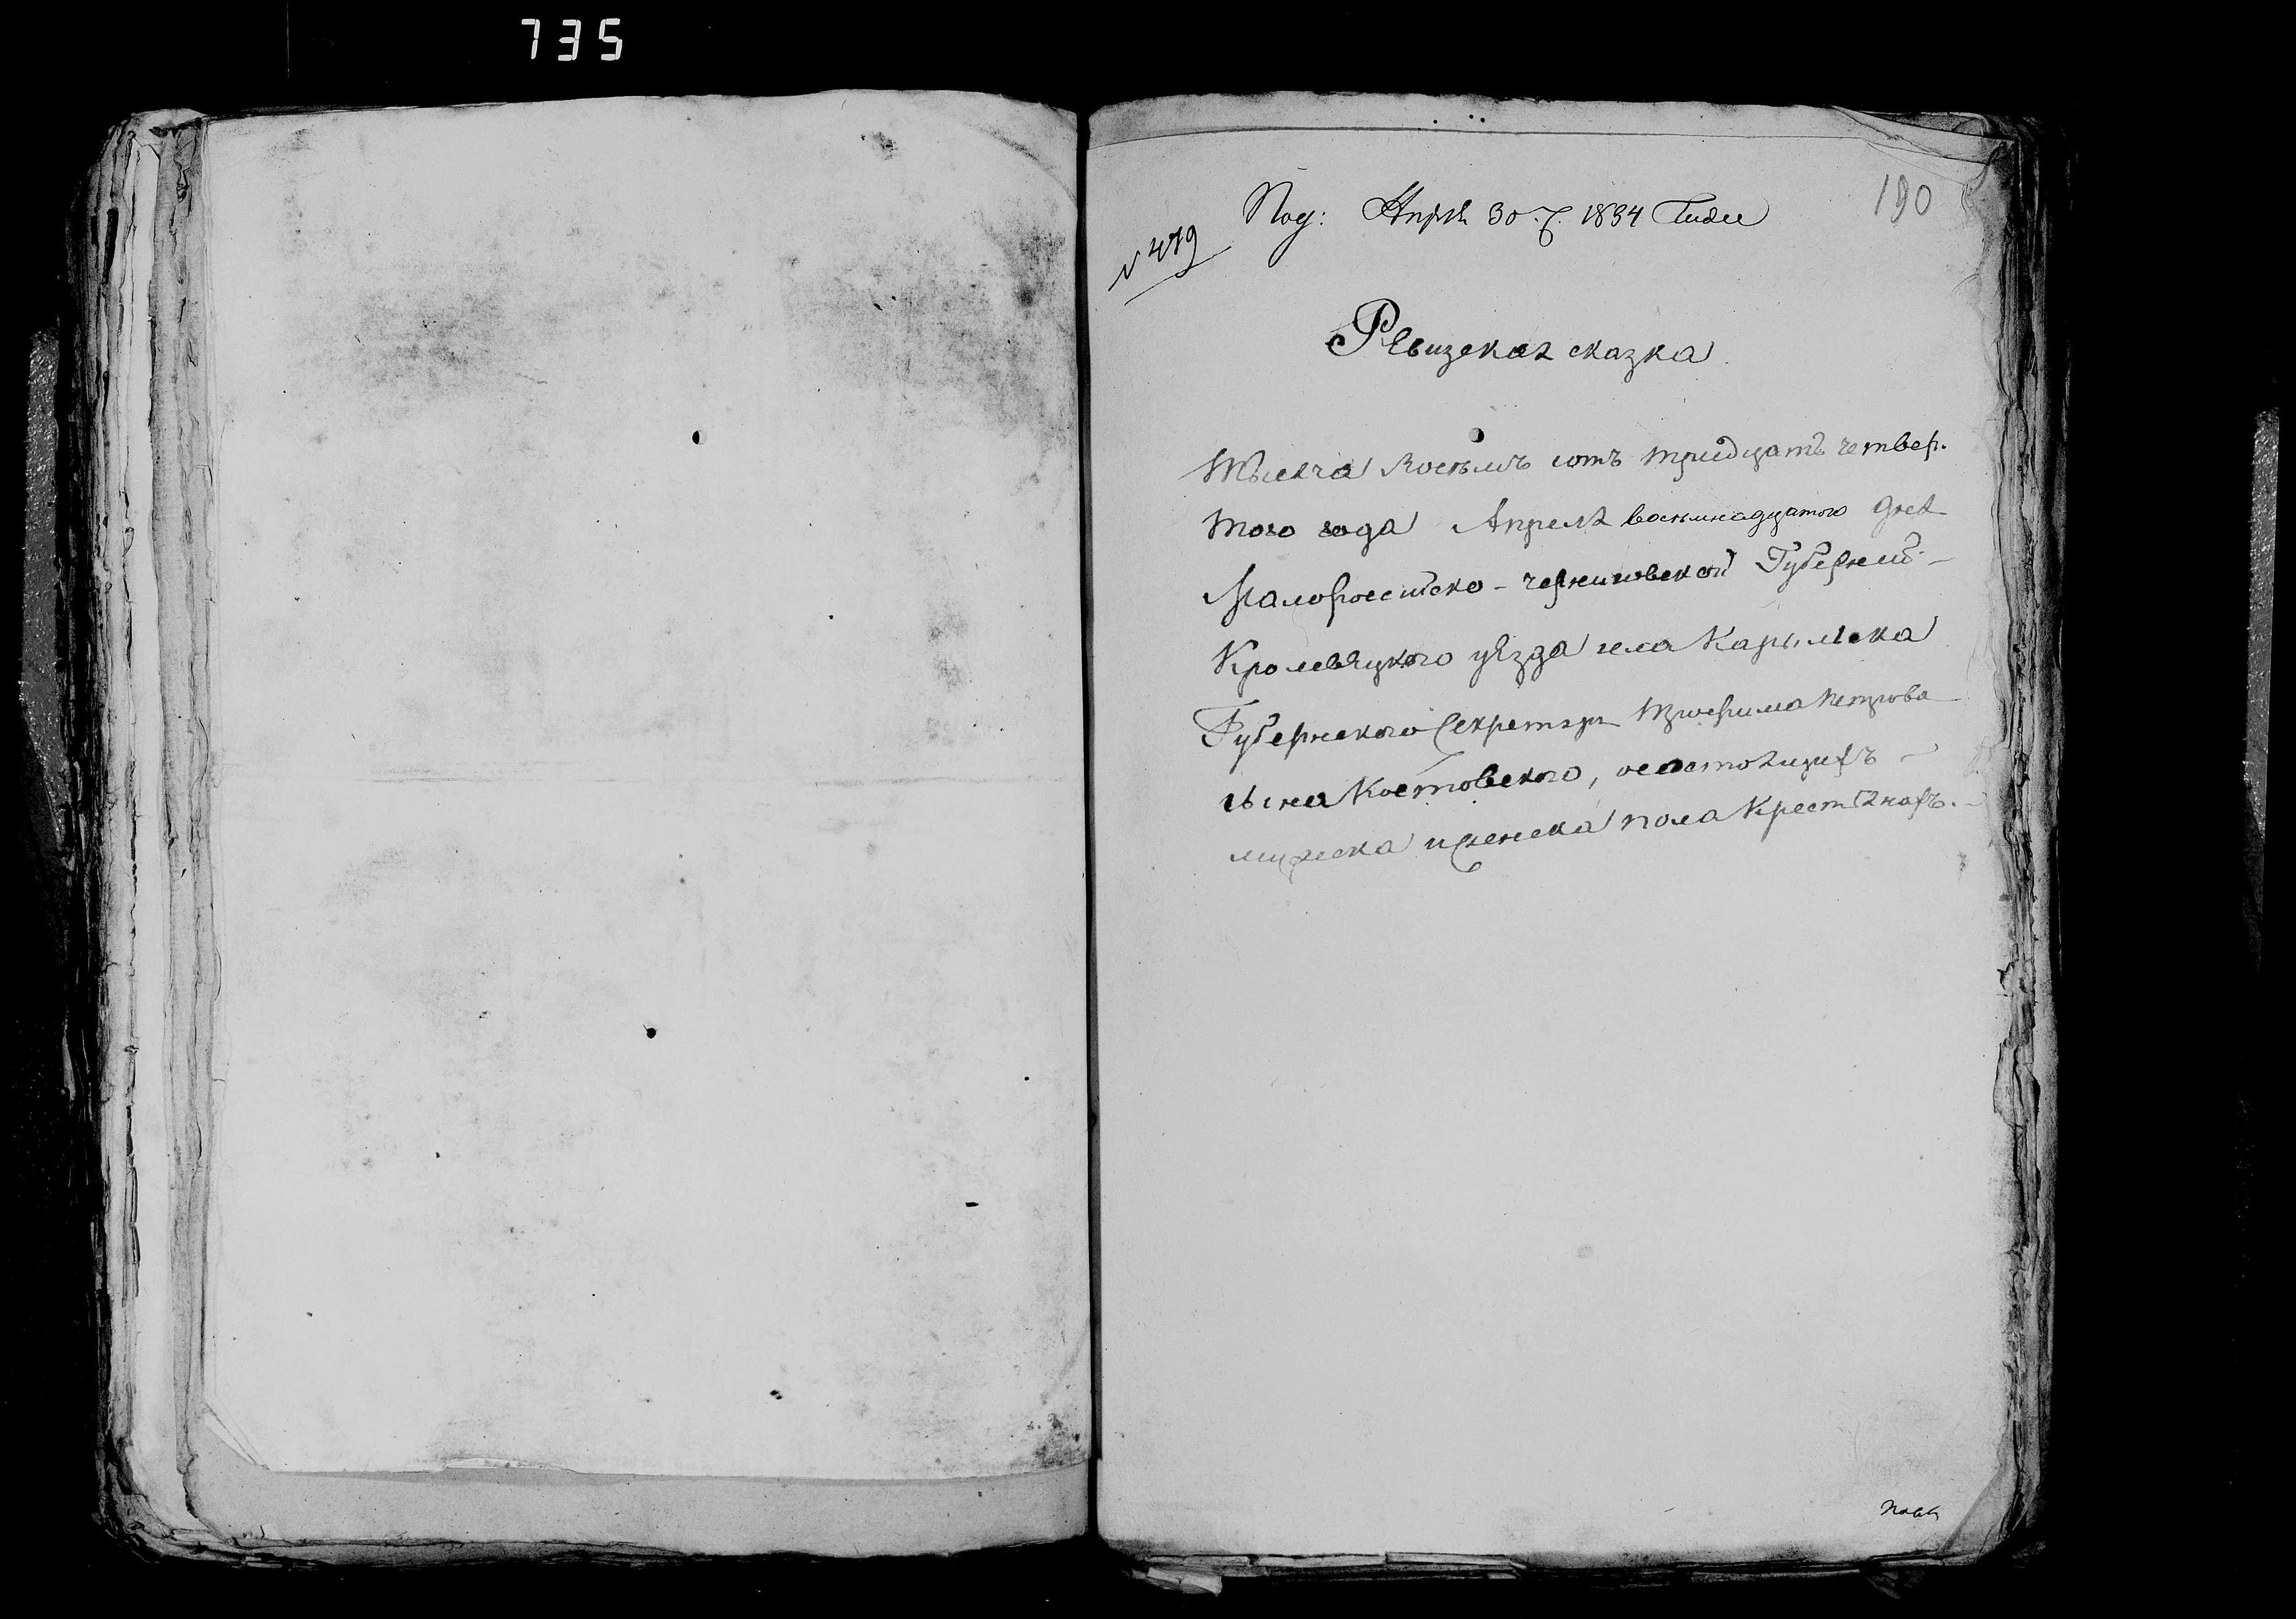 735
190
Под: Апреля 30 ч. 1834 Года
№ 479
Ревизская сказка
Тысяча восемь сотъ тридцать четвер.
того года Апреля восемнадцатого дня
Малоросийско - черниговской Губерний -
Кролевецкого уезда села Карыльска
Губернского Секретаря Трофима Петрова
сына Костовского, о состоящихъ -
мужеска и женска пола Крестьянахъ. -